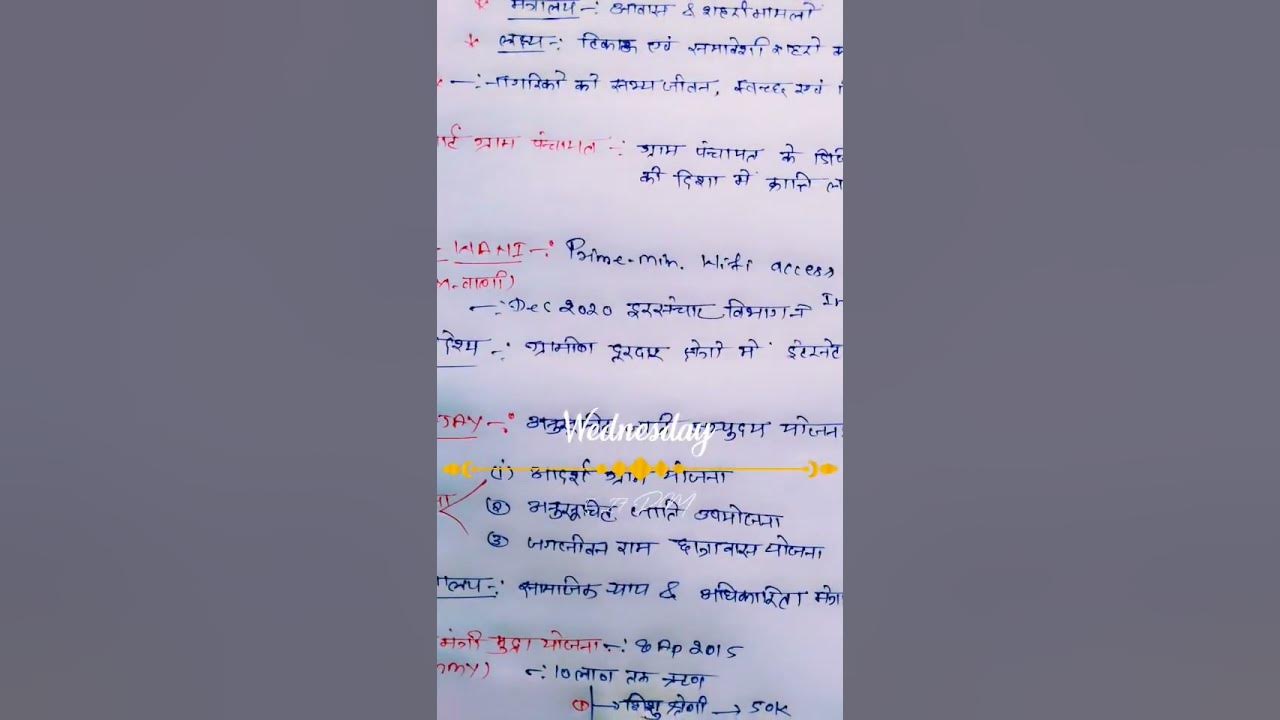 मंत्रालय -: आवास & शहरी मामलों
* लक्ष्य -: टिकाऊ एवं समावेशी शहरों
-: नागरिकों को सभ्य जीवन, स्वच्छ एवं
ग्राम पंचायत -: ग्राम पंचायत के
की दिशा में क्रान्ति
WANI -: Prime-min. Wifi access
वाणी)
-: Dec 2020 दूरसंचार विभाग ने
-: ग्रामीण दूरदराज क्षेत्रों में इंटरनेट
JAY -:
Wednesday
(1) आदर्श ग्राम योजना
② अनुसूचित जाति उपयोजना
③ जगजीवन राम छात्रावास योजना
-: सामाजिक न्याय & अधिकारिता
मंत्री मुद्रा योजना -: 8 Ap 2015
MMY) -: 10 लाख तक ऋण
① → शिशु श्रेणी → 50K